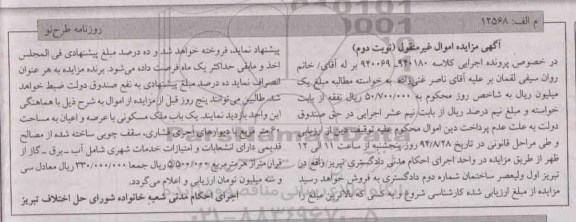 روزنامه طرح نو
م الف: ۱۲۵۶۸
آگهی مزایده اموال غیرمنقول (نوبت دوم)
در خصوص پرونده اجرایی کلاسه ۹۴۰۱۸۰ـ ۹۴۰۰۶۹ بر له آقای/ خانم
روان سیفی لقمان بر علیه آقای ناصر غنی‌زاده به خواسته مطالبه مبلغ یک
میلیون ریال به شاخص روز محکوم به ۵۰/۷۰۰/۰۰۰ ریال نفقه از بابت
خواسته و مبلغ نیم درصد ریال از بابت نیم عشر اجرایی در حق صندوق
دولت به علت عدم پرداخت دین اموال محکوم علیه توقیف پس از ارزیابی
و طی مراحل قانونی در تاریخ ۹۴/۷/۲۸ روز پنجشنبه از ساعت ۱۱ الی ۱۲
ظهر از طریق مزایده در واحد اجرای احکام مدنی دادگستری تبریز واقع در
تبریز اول ولیعصر ساختمان شماره دوم دادگستری به فروش خواهد رسید
مزایده از مبلغ ارزیابی شده کارشناسی شروع و به کسی که بالاترین مبلغ را
پیشنهاد نماید، فروخته خواهد شد و ده درصد مبلغ پیشنهادی فی المجلس
اخذ و مابقی حداکثر یک ماه فرصت داده می‌شود. برنده مزایده به هر عنوان
انصراف نماید ده درصد مبلغ پیشنهادی به نفع صندوق دولت ضبط خواهد
شد. طالبین می‌توانند پنج روز قبل از مزایده از اموال به شرح ذیل با هماهنگی
این واحد بازدید نمایند. یک باب ملک مسکونی با عرصه و اعیان به مساحت
متر مربع با دیوارهای آجری فشاری، سقف چوبی ساخته شده از مصالح
قدیمی دارای انشعابات و امتیازات خدمات شهری شامل آب ـ برق ـ گاز از
قرار متراژ هر مترمربع ۵/۵۰۰/۰۰۰ ریال جمعا ۳۳۰/۰۰۰/۰۰۰ ریال معادل سی
و سه میلیون تومان ارزیابی و اعلام می‌گردد.
اجرای احکام مدنی شعبه خانواده شورای حل اختلاف تبریز